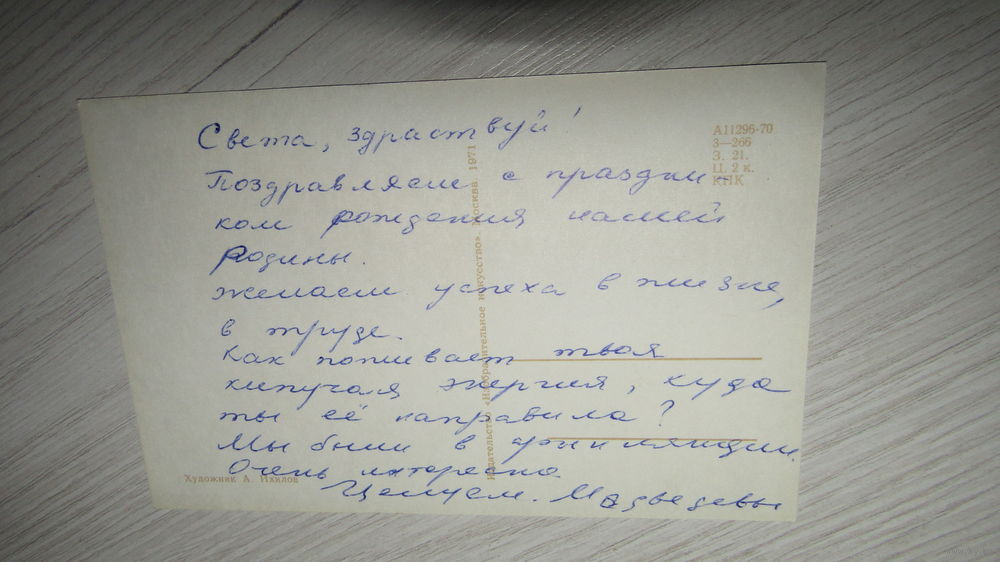 Света, здраствуй!
Поздравляем с праздни-
ком рождения нашей
родины.
желаем успеха в жизне,
в труде.
Как поживает твоя
кипучая энергия, куда
ты её направила?
Мы были в
Очень интересно.
Целуем. Медведевы
А11296-70
3—266
З. 21.
Ц. 2 к.
КПК
Издательство «Изобразительное искусство». Москва. 1971
Художник А. Ихилов